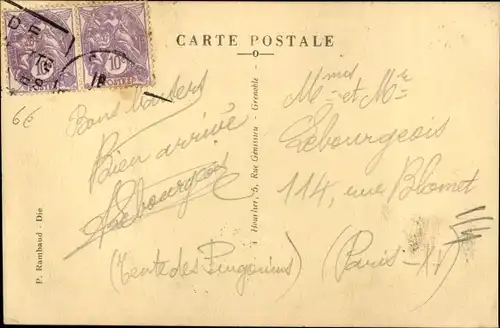 CARTE POSTALE
6€
10c
10c
Bons baisers
Bien arrivé
Lebourgeois
(Tente des Pingouins)
et Mr
Lebourgeois
114, rue Blomet
(Paris-XV)
P. Rambaud - Die
Hourlier, 6, Rue Génissieu - Grenoble